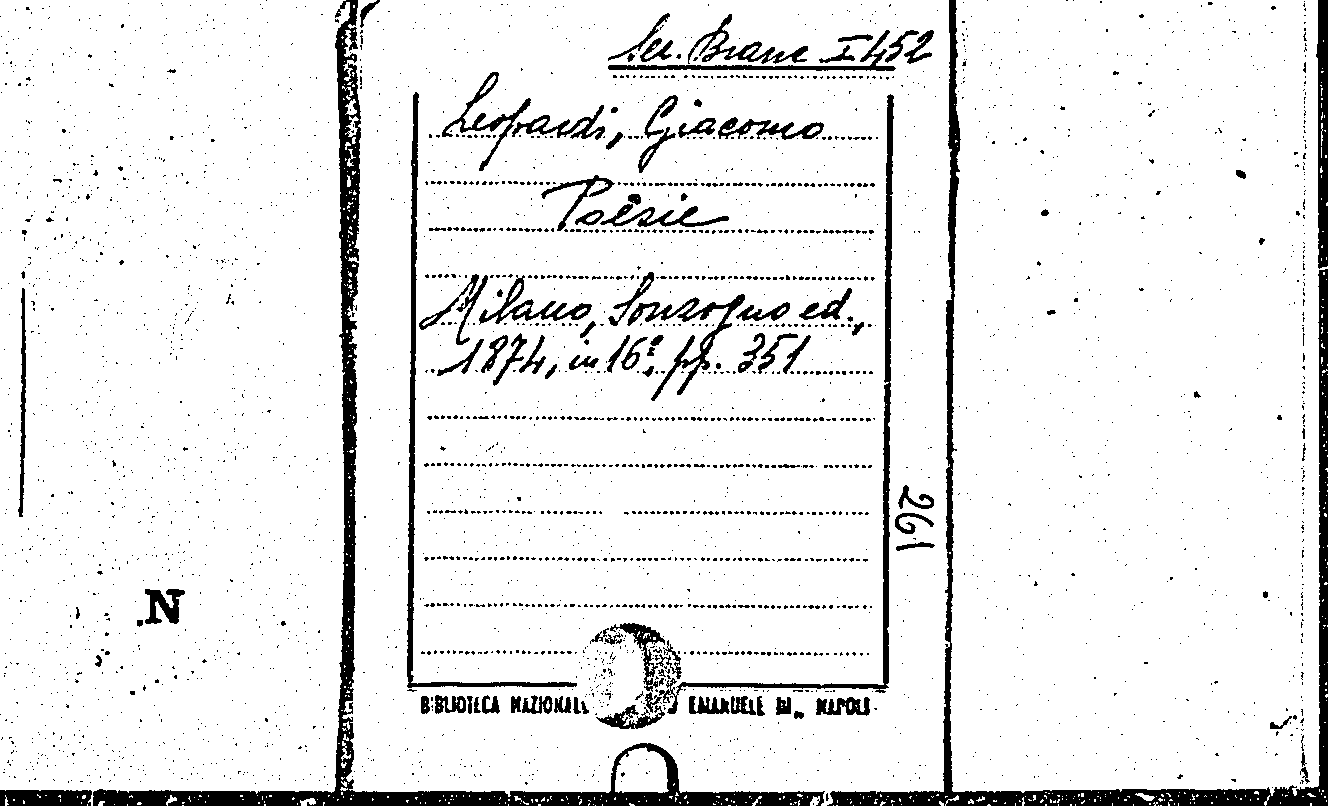 Ser. Branc I 452
Leopardi, Giacomo
Poesie
Milano, Sonzogno ed.,
1874, in 16º, pp. 351
261
N
BIBLIOTECA NAZIONALE EMANUELE III„ NAPOLI